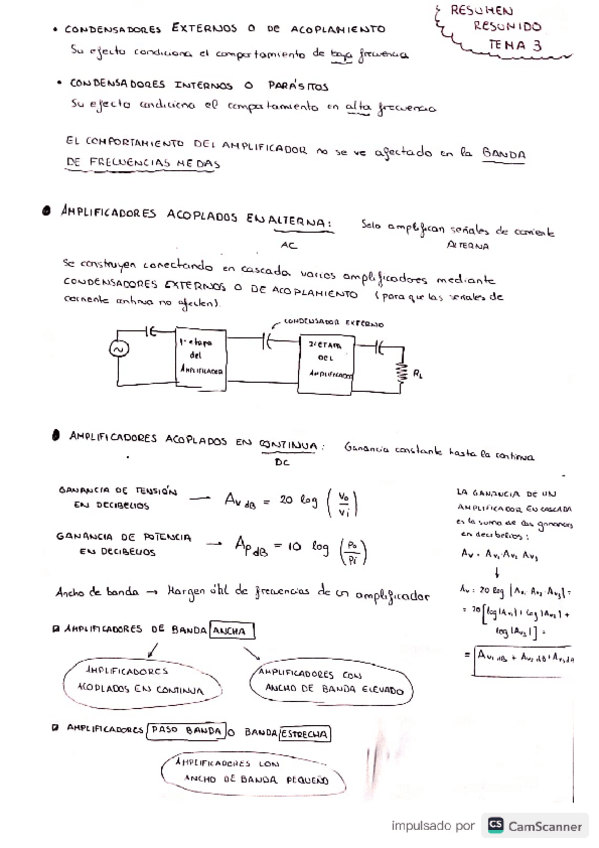 RESUMEN
RESUMIDO
TEMA 3
• CONDENSADORES EXTERNOS O DE ACOPLAMIENTO
Su efecto condiciona el comportamiento de baja frecuencia
• CONDENSADORES INTERNOS O PARÁSITOS
Su efecto condiciona el comportamiento en alta frecuencia
EL COMPORTAMIENTO DEL AMPLIFICADOR no se ve afectado en la BANDA
DE FRECUENCIAS MEDIAS
AMPLIFICADORES ACOPLADOS EN ALTERNA: Solo amplifican señales de corriente
AC ALTERNA
Se construyen conectando en cascada varios amplificadores mediante
CONDENSADORES EXTERNOS O DE ACOPLAMIENTO (para que las señales de
corriente continua no afecten).
CONDENSADOR EXTERNO
1ª etapa
del
AMPLIFICADOR
2ª ETAPA
DEL
AMPLIFICADOR
RL
AMPLIFICADORES ACOPLADOS EN CONTINUA: Ganancia constante hasta la continua
DC
GANANCIA DE TENSIÓN
EN DECIBELIOS → Av dB = 20 log (Vo/Vi)
GANANCIA DE POTENCIA
EN DECIBELIOS → Ap dB = 10 log (Po/Pi)
LA GANANCIA DE UN
AMPLIFICADOR EN CASCADA
es la suma de las ganancias
en decibelios:
Av = Av1·Av2·Av3
↓
Av = 20 log |Av1·Av2·Av3| =
= 20[log|Av1| + log|Av2| +
log|Av3|] =
= Av1 dB + Av2 dB + Av3 dB
Ancho de banda → Margen útil de frecuencias de un amplificador
AMPLIFICADORES DE BANDA ANCHA
AMPLIFICADORES
ACOPLADOS EN CONTINUA
AMPLIFICADORES CON
ANCHO DE BANDA ELEVADO
AMPLIFICADORES PASO BANDA O BANDA ESTRECHA
AMPLIFICADORES CON
ANCHO DE BANDA PEQUEÑO
impulsado por CS CamScanner